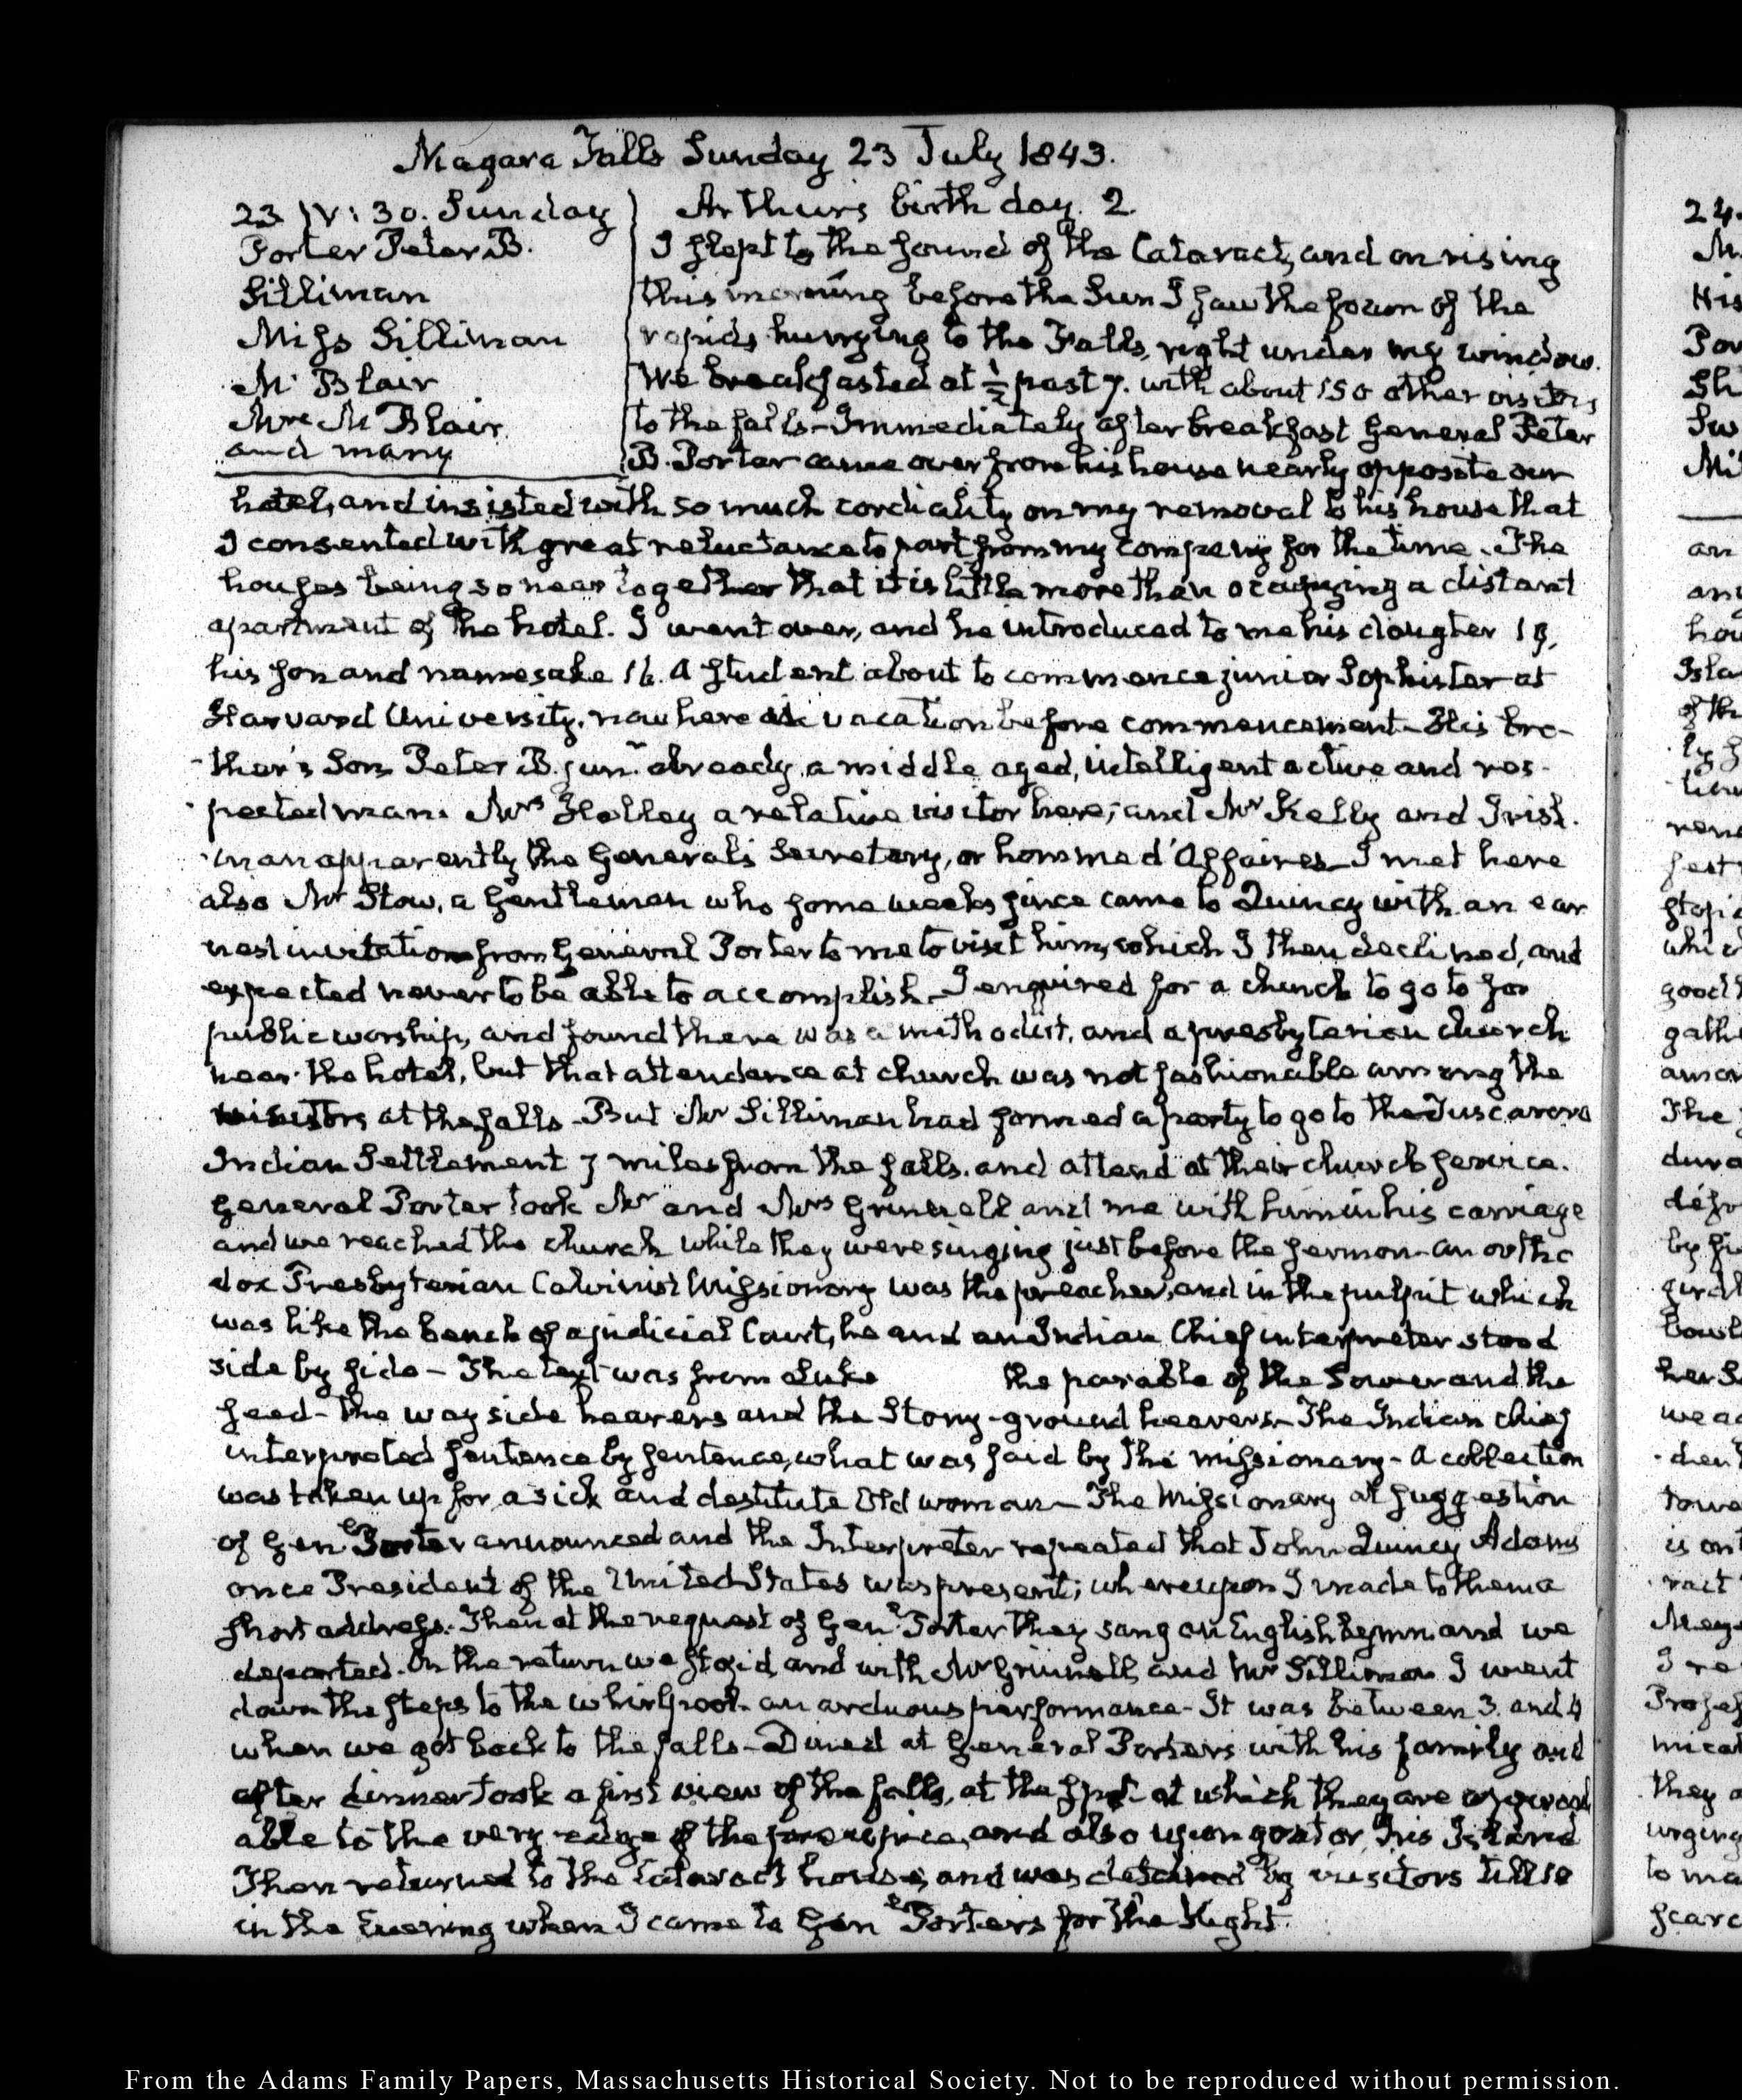 Niagara Falls Sunday 23 July 1843.
23. IV: 30. Sunday
Porter Peter B.
Silliman
Miss Silliman
Mr Blair
Mrs M Blair
and many
Arthur's birth day. 2.
I slept to the sound of the Cataract, and on rising
this morning before the Sun I saw the foam of the
rapids hurrying to the Falls, right under my window.
We breakfasted at ½ past 7. with about 150 other visitors
to the falls – Immediately after breakfast General Peter
B. Porter came over from his house nearly opposite our
hotel, and insisted with so much cordiality on my removal to his house that
I consented with great reluctance to part from my company for the time. The
houses being so near together that it is little more than occupying a distant
apartment of the hotel. I went over, and he introduced to me his daughter
his son and namesake 16. a student about to commence junior Sophister at
Harvard University, now here vacation before commencement – His bro-
-ther's Son Peter B. junr. already, a middle aged, intelligent active and res-
-pected man. Mrs Holley a relative visitor here; and Mr Kelly and Irish.
-man apparently the General's Secretary, or homme d'Affaires – I met here
also Mr Stow, a Gentleman who some weeks since came to Quincy with an ear
nest invitation from General Porter to me to visit him, which I then declined, and
expected never to be able to accomplish – I enquired for a church to go to for
public worship, and found there was a methodist, and a presbyterian church
near the hotel, but that attendance at church was not fashionable among the
visitors at the falls – But Mr Silliman had formed a party to go to the Tuscarora
Indian Settlement 7 miles from the falls, and attend at their church service.
General Porter took Mr and Mrs Grinnell and me with him in his carriage
and we reached the church while they were singing just before the sermon – an ortho
dox Presbyterian Calvinist Missionary was the preacher, and in the pulpit which
was like the bench of a judicial Court, he and an Indian Chief interpreter stood
side by side – The text was from Luke the parable of the Sower and the
seed – the way side hearers and the Stony-ground hearers – The Indian chief
interpreted sentence by sentence, what was said by the missionary – A collection
was taken up for a sick and destitute Old woman – The Missionary at suggestion
of Genl Porter announced and the Interpreter repeated that John Quincy Adams
once President of the United States was present; whereupon I made to them a
short address. Then at the request of Genl Porter they sang an English hymn and we
departed. On the return we stop'd, and with Mr Grinnell, and Mr Silliman I went
down the steps to the whirlpool – an arduous performance – It was between 3. and 4
when we got back to the falls – Dined at General Porters with his family and
after dinner took a first view of the falls, at the spot at which they are approach
able to the very edge of the precipice, and also upon goat or Iris Island
Then returned to the Cataract house, and was detained by visitors till 10
in the Evening when I came to Genl Porters for the Night.
24.
From the Adams Family Papers, Massachusetts Historical Society. Not to be reproduced without permission.